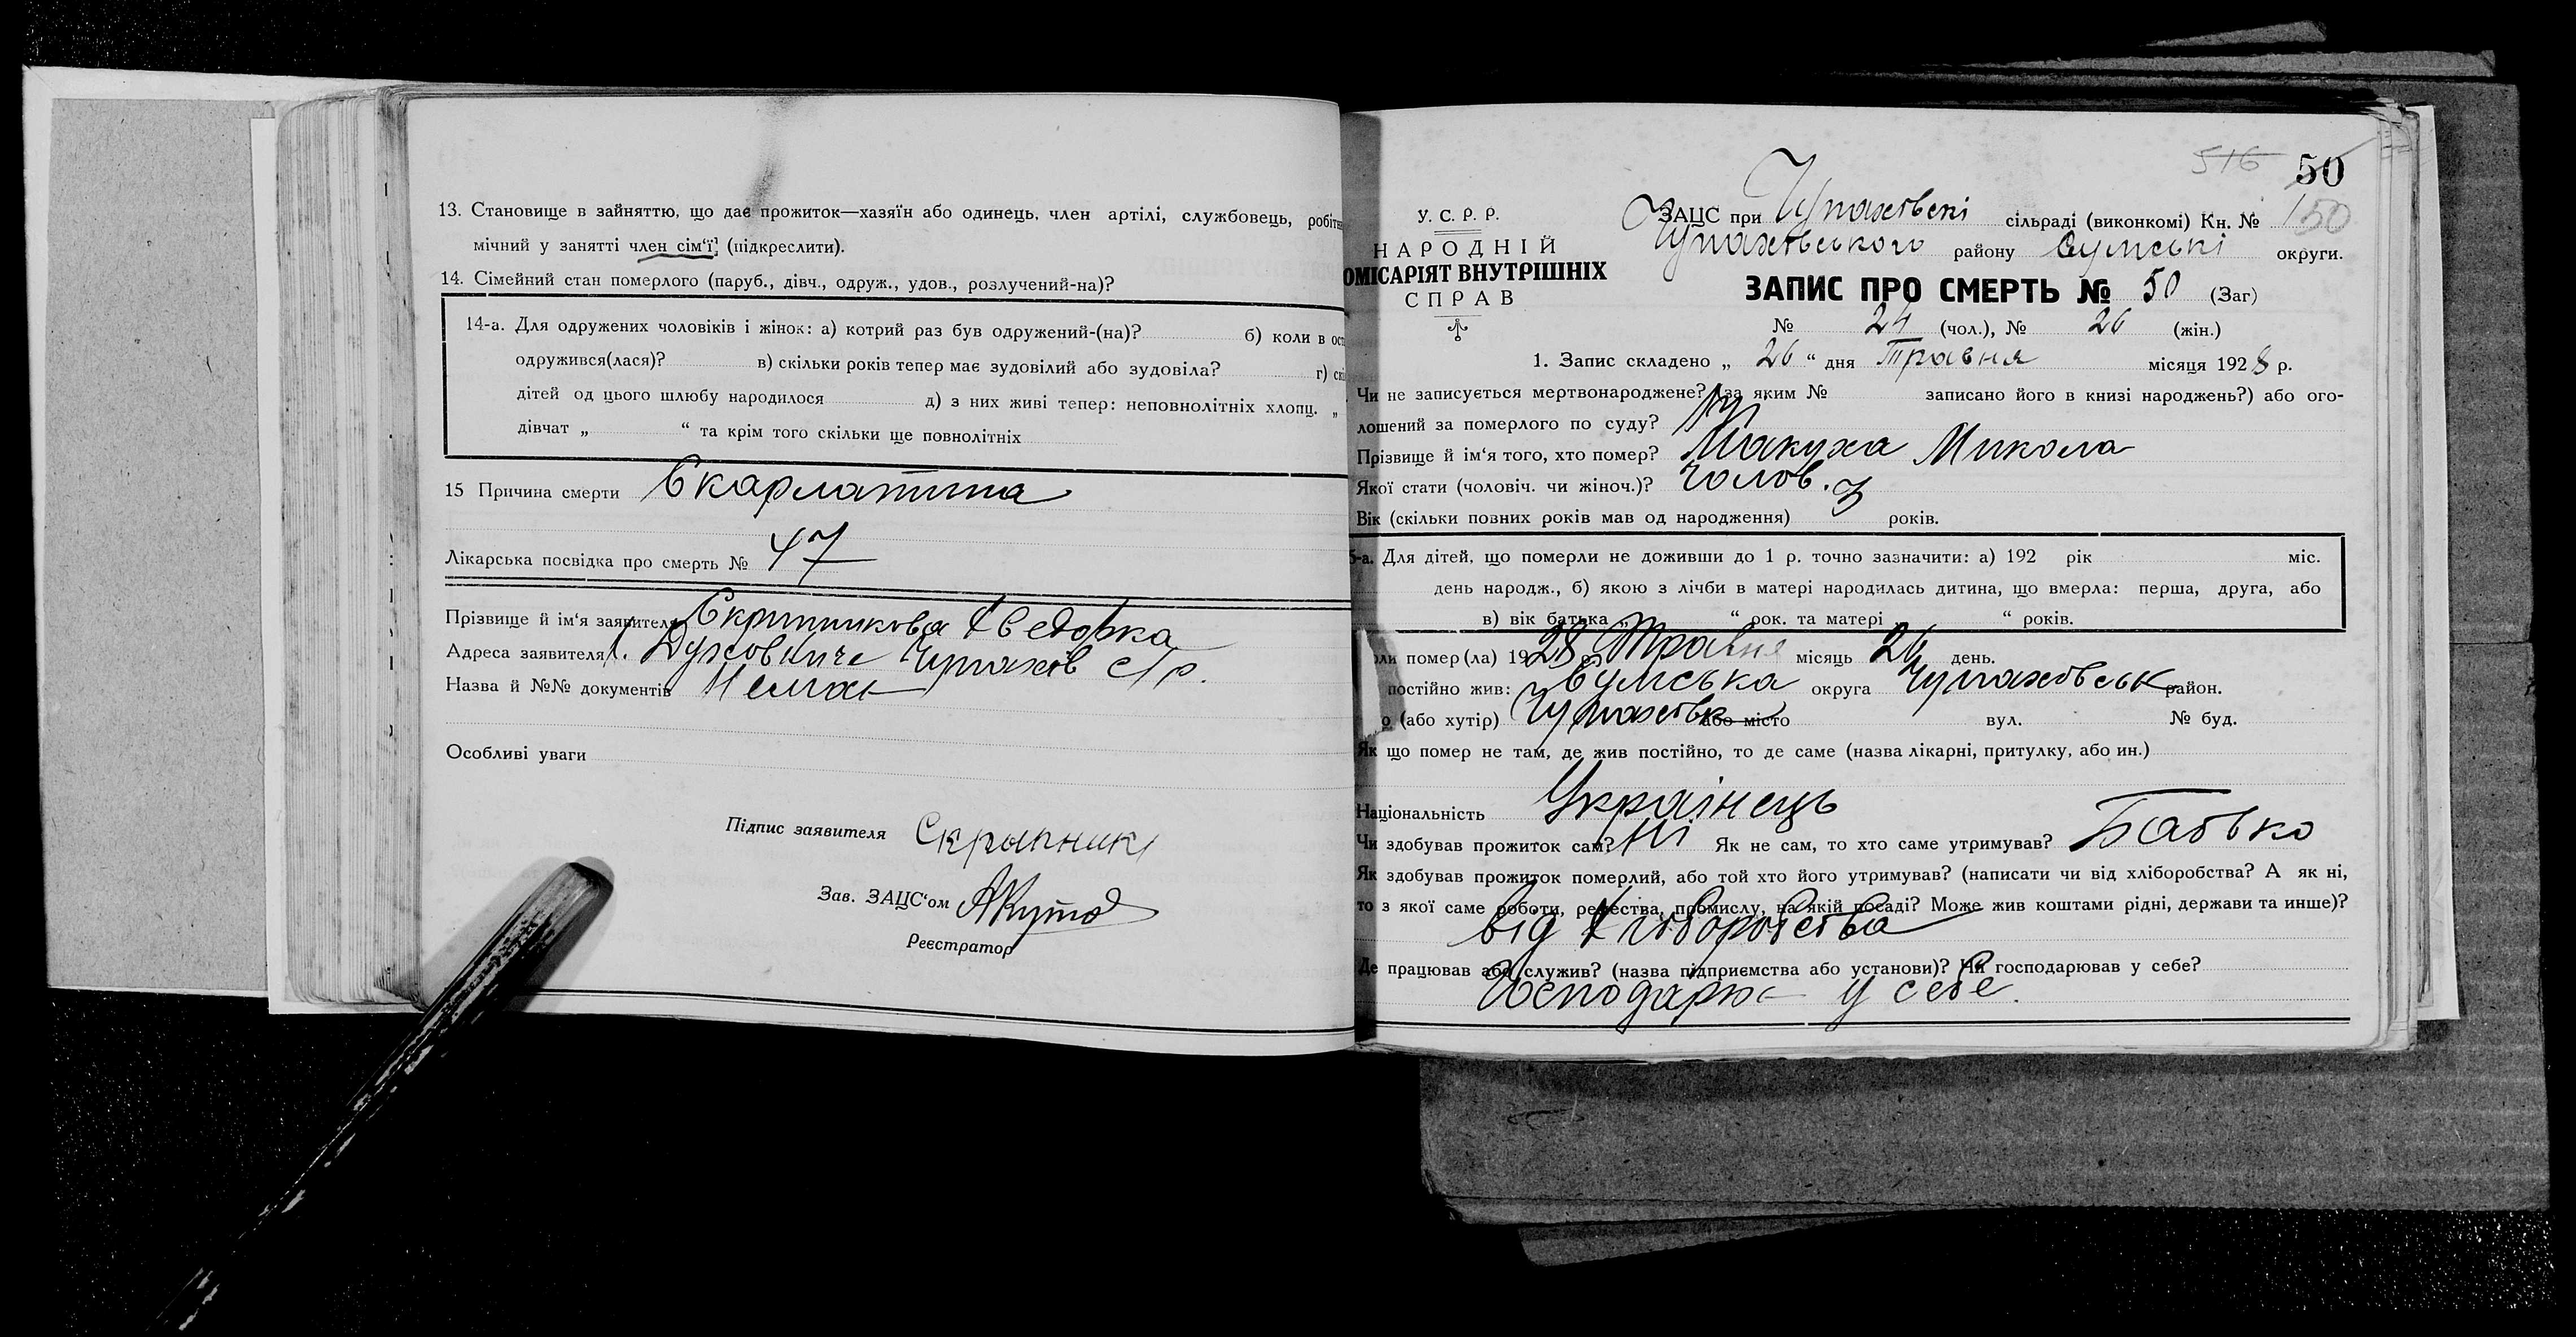 13. Становище в зайняттю, що дає прожиток—хазяїн або одинець, член артілі, службовець,
мічний у занятті член сім'ї (підкреслити).
14. Сімейний стан померлого (паруб., дівч., одруж., удов., розлучений-на)?
14-а. Для одружених чоловіків і жінок: а) котрий раз був одружений-(на)? б) коли в
одружився(лася)? в) скільки років тепер має зудовілий або зудовіла? г)
дітей од цього шлюбу народилося д) з них живі тепер: неповнолітніх хлопц. „
дівчат „ “ та крім того скільки ще повнолітніх
15 Причина смерти Скарлатина
Лікарська посвідка про смерть № 47
Прізвище й ім'я заявителя
Адреса заявителя
Назва й №№ документів Немає
Особливі уваги
Підпис заявителя Скрыпник
Зав. ЗАЦС'ом
Реєстратор
516 50
У. С. Р. Р.
НАРОДНІЙ
ОМІСАРІЯТ ВНУТРІШНІХ
СПРАВ
ЗАЦС при Чупахівскі сільраді (виконкомі) Кн. № 150
Чупахівського району Сумські округи.
ЗАПИС ПРО СМЕРТЬ № 50 (Заг)
№ 24 (чол.), № 26 (жін.)
1. Запис складено „ 26 “ дня Травня місяця 1928 р.
Чи не записується мертвонароджене? (за яким № записано його в книзі народжень?) або ого-
лошений за померлого по суду? Ні
Прізвище й ім'я того, хто помер? Макуха Микола
Якої стати (чоловіч. чи жіноч.)? Чолов.
Вік (скільки повних років мав од народження) 3 років.
5-а. Для дітей, що померли не доживши до 1 р. точно зазначити: а) 192 рік міс.
день народж., б) якою з лічби в матері народилась дитина, що вмерла: перша, друга, або
в) вік батька „ “ рок. та матері “ років.
помер(ла) 1928 р. Травня місяць 26 день.
постійно жив: Сумська округа Чупахівськ район.
о (або хутір) Чупахівк або місто вул. № буд.
Як що помер не там, де жив постійно, то де саме (назва лікарні, притулку, або ин.)
Національність Українець
Чи здобував прожиток сам? Ні Як не сам, то хто саме утримував? Батько
Як здобував прожиток померлий, або той хто його утримував? (написати чи від хліборобства? А як ні,
то з якої саме роботи, ремества, промислу, на якій посаді? Може жив коштами рідні, держави та инше)?
від Хліборобства
Де працював або служив? (назва підприємства або установи)? Чи господарював у себе?
Господарює у себе.